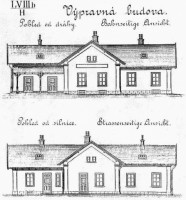 LVIIIb
H
Výpravná budova.
Pohled od dráhy. Bahnseitige Ansicht.
Pohled od silnice. Strassenseitige Ansicht.